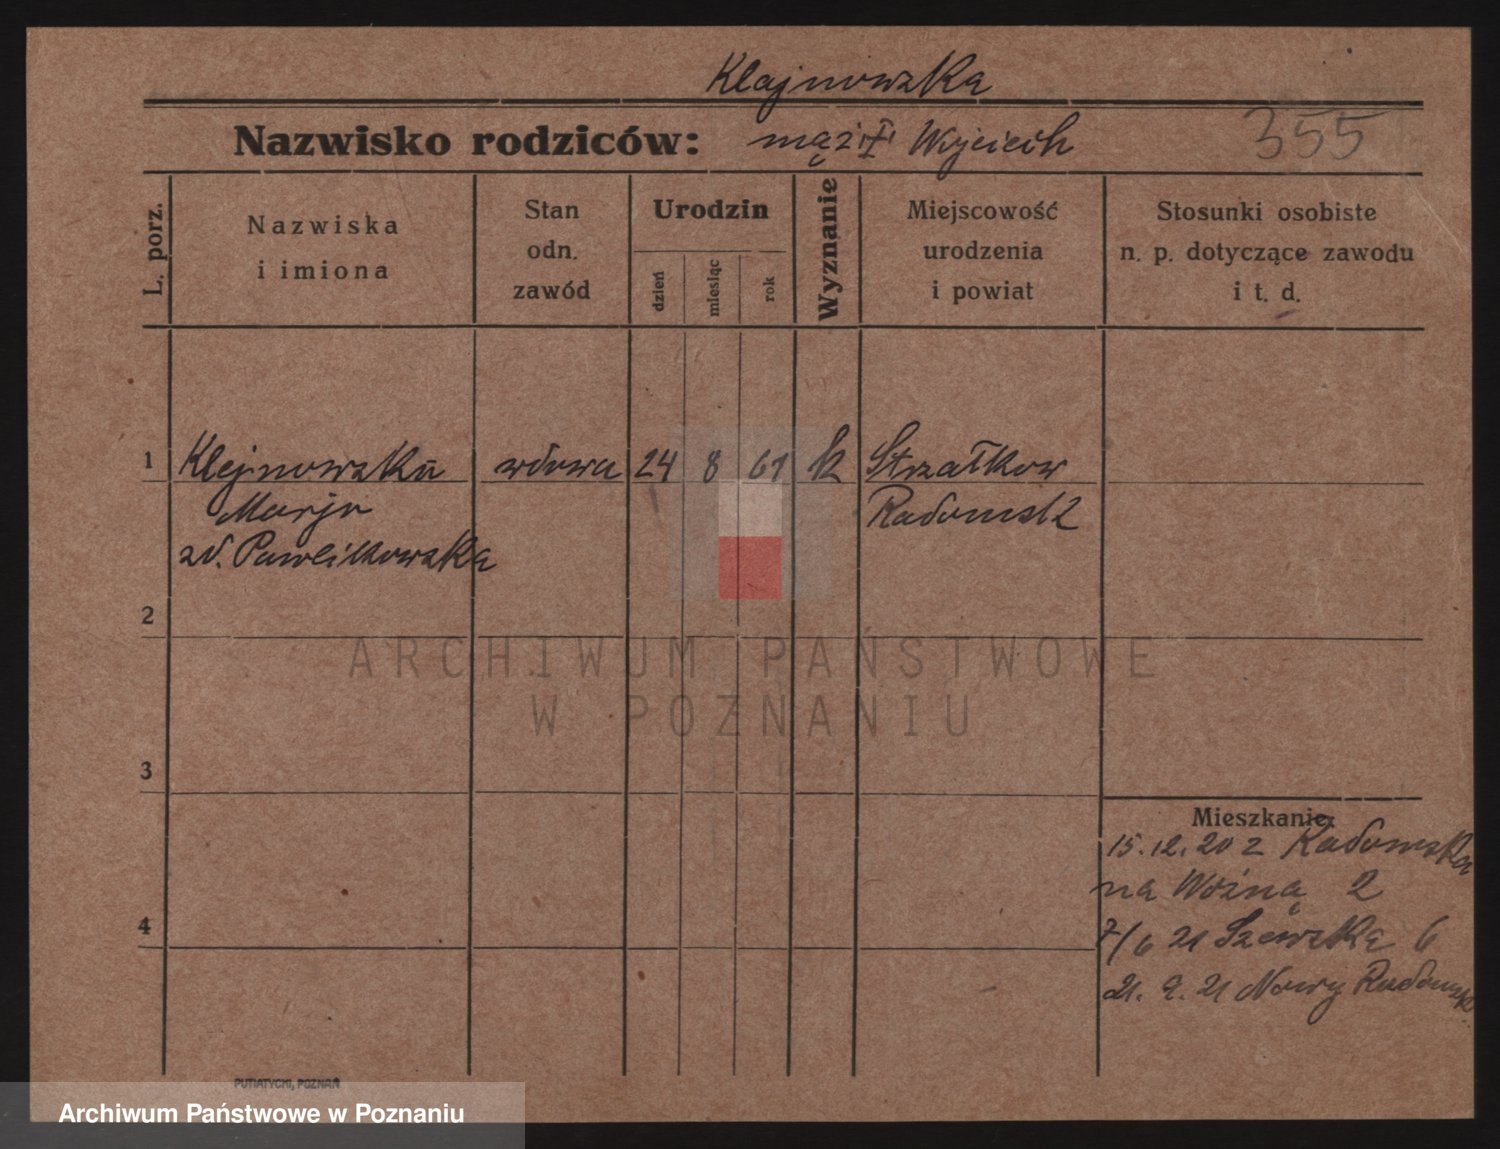 Klajnowska
Nazwisko rodziców: mąż I Wojciech 355
L. porz.
Nazwiska
i imiona
Stan
odn.
zawód
Urodzin
dzień
miesiąc
rok
Wyznanie
Miejscowość
urodzenia
i powiat
Stosunki osobiste
n. p. dotyczące zawodu
i t. d.
1 Klejnowska wdowa 24 8 61 k Strzałkow
Marja Radomsk
zd. Pawlikowska
2
ARCHIWUM PAŃSTWOWE
W POZNANIU
3
Mieszkanie:
15.12.20 z Radomska
na Woźną 2
4
7/6 21 Szewska 6
21. 9. 21 Nowy Radomsk
PUTIATYCKI, POZNAŃ
Archiwum Państwowe w Poznaniu